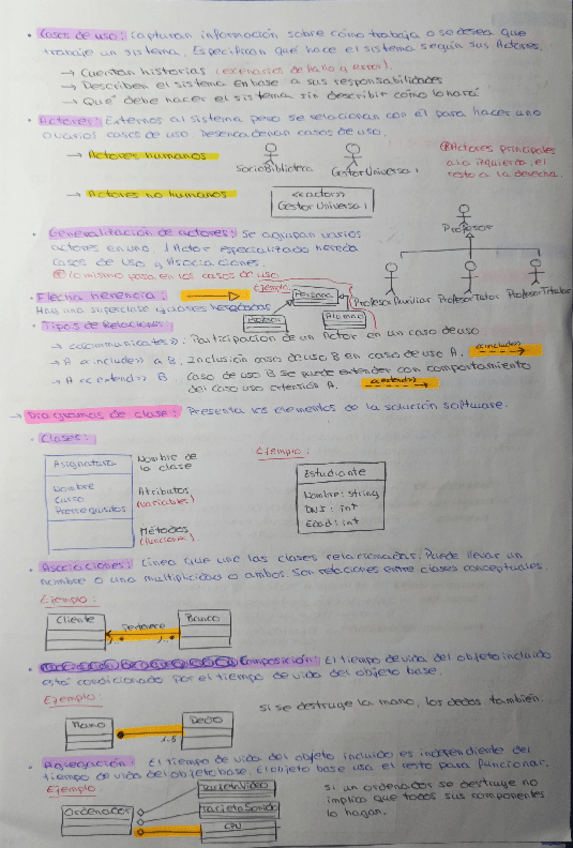 • Casos de uso: Capturan información sobre cómo trabaja o se desea que
trabaje un sistema. Especifican qué hace el sistema según sus Actores.
→ Cuentan historias (escenarios de fallo y error).
→ Describen el sistema en base a sus responsabilidades
→ Qué debe hacer el sistema sin describir cómo lo hará
• Actores: Externos al sistema pero se relacionan con él para hacer uno
o varios casos de uso. Desencadenan casos de uso.
→ Actores humanos
Socio Biblioteca
Gestor Universal
Actores principales
a la izquierda, el
resto a la derecha.
→ Actores no humanos
<<actor>>
Gestor Universal
• Generalización de actores: Se agrupan varios
actores en uno. 1 Actor especializado hereda
casos de uso y Asociaciones.
lo mismo pasa en los casos de uso
Profesor
Profesor Auxiliar
Profesor Tutor
Profesor Titular
• Flecha herencia:
Ejemplo
Persona
Hay una superclase y
heredadas
Profesor
Alumno
• Tipos de Relaciones:
→ <<communicates>>: Participación de un Actor en un caso de uso.
→ A <<include>> a B. Inclusión caso de uso B en caso de uso A.
<<include>>
→ A <<extend>> B. Caso de uso B se puede extender con comportamiento
del caso uso extensión A.
<<extend>>
→ Diagramas de clase: Presenta los elementos de la solución software.
• Clases:
Ejemplo:
Asignatura
Nombre de
la clase
Nombre
Curso
Prerrequisitos
Atributos
(variables)
Métodos
(funciones)
Estudiante
Nombre: String
DNI: int
Edad: int
• Asociaciones: Línea que une las clases relacionadas. Puede llevar un
nombre o una multiplicidad o ambos. Son relaciones entre clases conceptuales.
Ejemplo:
Cliente
Pertenece
Banco
1..*
1..*
• Composición: El tiempo de vida del objeto incluido
está condicionado por el tiempo de vida del objeto base.
Ejemplo:
Si se destruye la mano, los dedos también.
Mano
Dedo
1..5
• Agregación: El tiempo de vida del objeto incluido es independiente del
tiempo de vida del objeto base. El objeto base usa el resto para funcionar.
Ejemplo
Ordenador
Tarjeta Video
Tarjeta Sonido
CPU
Si un ordenador se destruye no
implica que todos sus componentes
lo hagan.